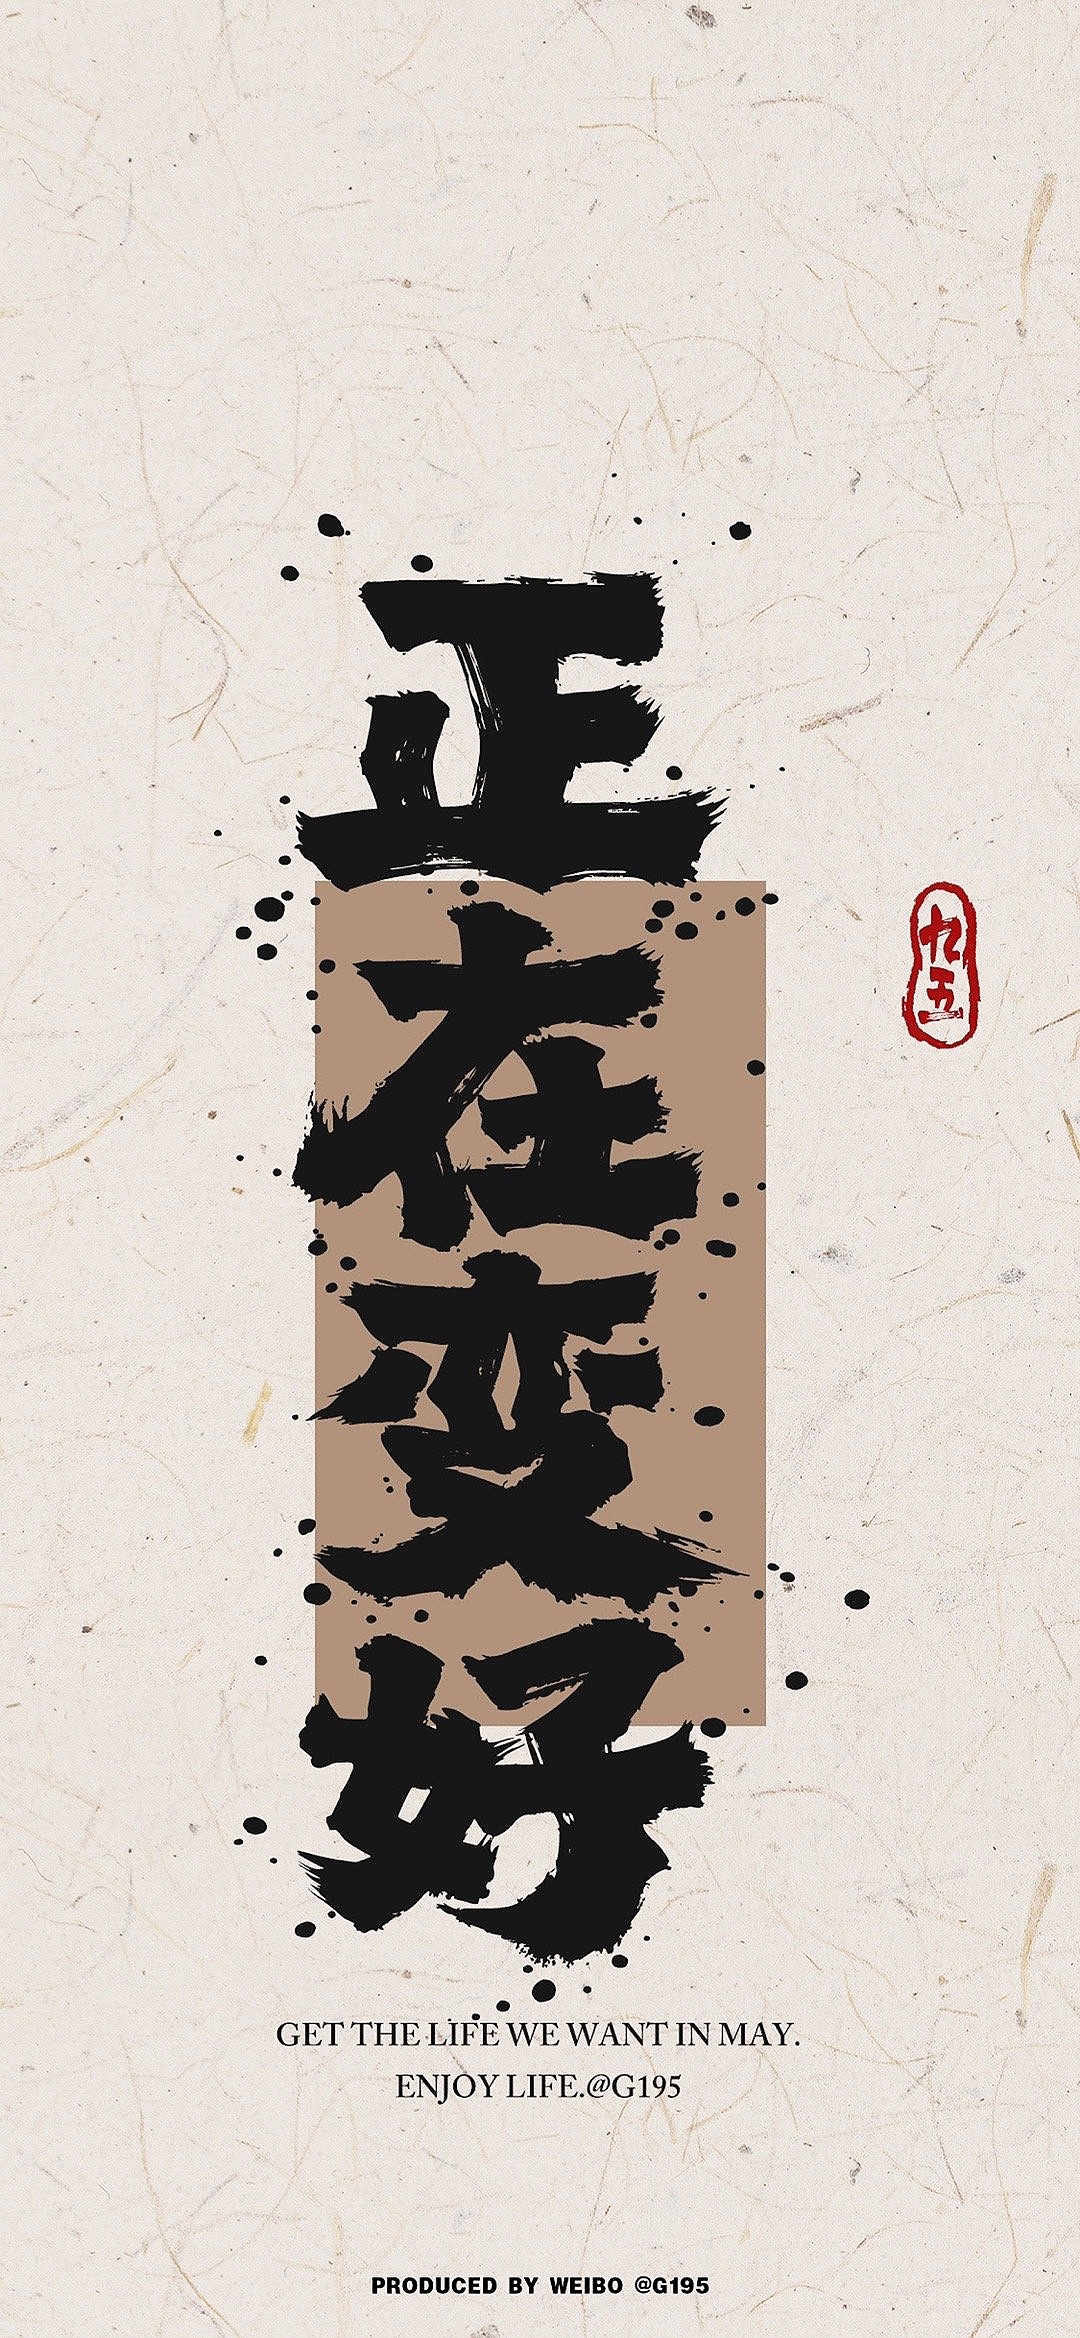 正在变好
九五
GET THE LIFE WE WANT IN MAY.
ENJOY LIFE.@G195
PRODUCED BY WEIBO @G195